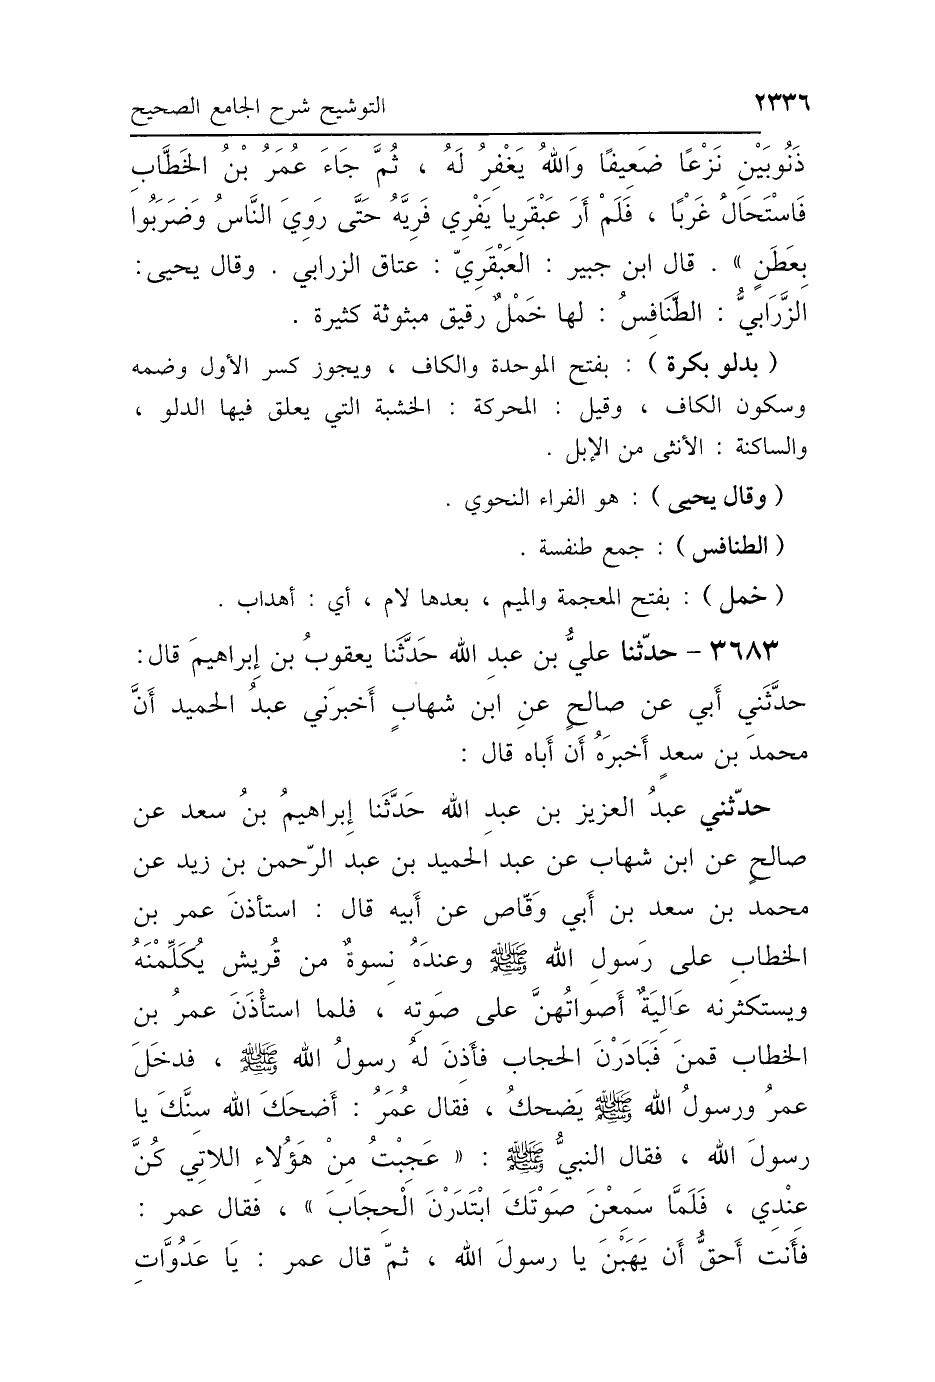 ٢٣٣٦ التوشيح شرح الجامع الصحيح
ذَنُوبَيْنِ نَزْعًا ضَعِيفًا وَاللهُ يَغْفِرُ لَهُ ، ثُمَّ جَاءَ عُمَرُ بْنُ الخَطَّابِ
فَاسْتَحَالُ غَرْبًا ، فَلَمْ أَرَ عَبْقَرِيا يَفْرِي فَرِيَّهُ حَتَّى رَوِيَ النَّاسُ وَضَرَبُوا
بِعَطَنٍ » . قال ابن جبير : العَبْقَرِيّ : عتاق الزرابي . وقال يحيى :
الزَّرَابيُّ : الطَّنَافِسُ : لها خَمْلٌ رقيق مبثوثة كثيرة .
( بدلو بكرة ) : بفتح الموحدة والكاف ، ويجوز كسر الأول وضمه
وسكون الكاف ، وقيل : المحركة : الخشبة التي يعلق فيها الدلو ،
والساكنة : الأنثى من الإبل .
( وقال يحيى ) : هو الفراء النحوي .
( الطنافس ) : جمع طنفسة .
( خمل ) : بفتح المعجمة والميم ، بعدها لام ، أي : أهداب .
٣٦٨٣ - حدّثنا عليُّ بن عبدِ الله حَدَّثَنا يعقوبُ بن إبراهيمَ قال :
حدَّثَني أَبي عن صالحٍ عنِ ابن شهابٍ أَخبرَني عبدُ الحميد أَنَّ
محمدَ بن سعدٍ أَخبرَهُ أَن أَباه قال :
حدّثني عبدُ العزيز بن عبدِ الله حَدَّثَنا إبراهيمُ بنُ سعد عن
صالحٍ عن ابن شهاب عن عبد الحميد بن عبد الرّحمن بن زيد عن
محمد بن سعد بن أَبي وَقّاص عن أَبيه قال : استأذنَ عمر بن
الخطابِ على رَسولِ الله ﷺ وعندَهُ نِسوةٌ من قُريش يُكَلِّمْنَهُ
ويستكثرنه عَالِيَةٌ أصواتُهنَّ على صَوتِه ، فلما استأْذَنَ عمرُ بن
الخطاب قمنَ فَبَادَرْنَ الحجاب فأَذِنَ لهُ رسولُ الله ﷺ ، فدخَلَ
عمرُ ورسولُ الله ﷺ يَضحكُ ، فقال عُمَرُ : أَضحَكَ الله سنَّكَ يا
رسولَ الله ، فقال النبيُّ ﷺ : « عَجِبْتُ مِنْ هَؤُلاءِ اللاتِي كُنَّ
عِنْدِي ، فَلَمَّا سَمِعْنَ صَوْتَكَ ابْتَدَرْنَ الْحِجَابَ » ، فقال عمر :
فأَنت أَحقُّ أَن يَهَبْنَ يا رسولَ الله ، ثمّ قال عمر : يَا عَدُوَّاتِ